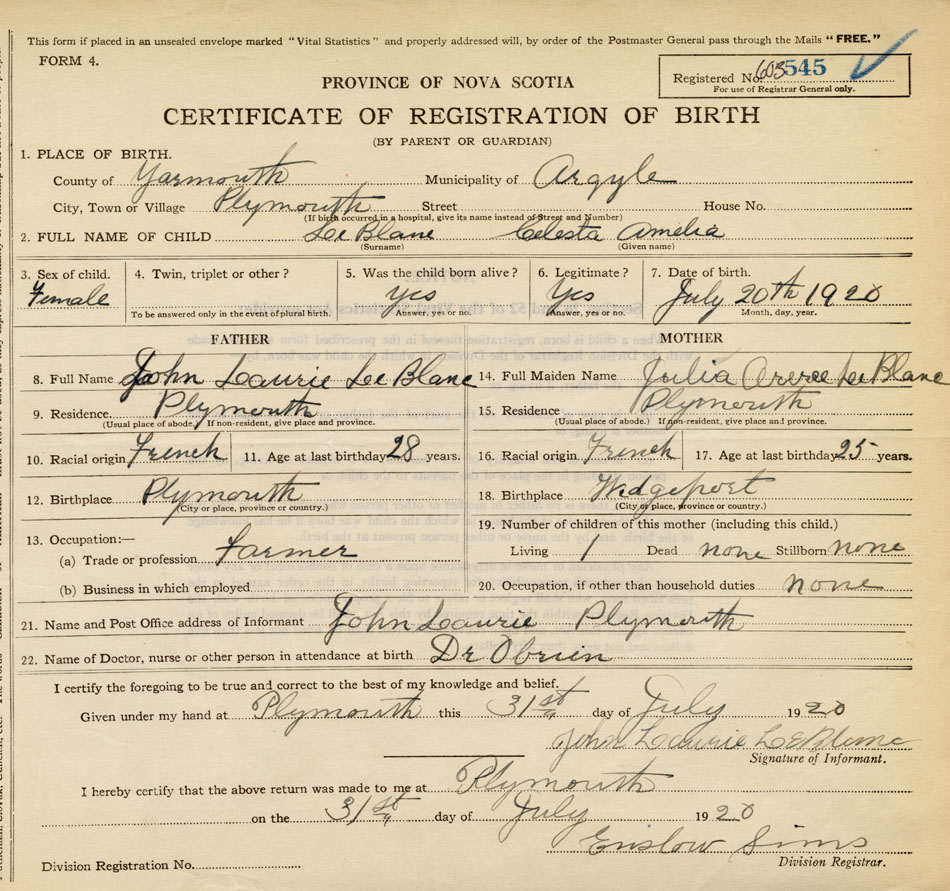 This form if placed in an unsealed envelope marked "Vital Statistics" and properly addressed will, by order of the Postmaster General pass through the Mails "FREE."
FORM 4.
Registered No. 603 545
For use of Registrar General only.
PROVINCE OF NOVA SCOTIA
CERTIFICATE OF REGISTRATION OF BIRTH
(BY PARENT OR GUARDIAN)
1. PLACE OF BIRTH.
County of Yarmouth Municipality of Argyle
City, Town or Village Plymouth Street House No.
(If birth occurred in a hospital, give its name instead of Street and Number)
2. FULL NAME OF CHILD LeBlanc Celesta Amelia
(Surname) (Given name)
3. Sex of child. 4. Twin, triplet or other? 5. Was the child born alive? 6. Legitimate? 7. Date of birth.
Female yes Yes July 20th 1920
To be answered only in the event of plural birth. Answer, yes or no. Answer, yes or no. Month, day, year.
FATHER MOTHER
8. Full Name John Laurie LeBlanc 14. Full Maiden Name Julia LeBlanc
9. Residence. Plymouth 15. Residence Plymouth
(Usual place of abode.) If non-resident, give place and province. (Usual place of abode.) If non-resident, give place and province.
10. Racial origin French 11. Age at last birthday 28 years. 16. Racial origin French 17. Age at last birthday 25 years.
12. Birthplace Plymouth 18. Birthplace Wedgeport
(City or place, province or country.) (City or place, province or country.)
13. Occupation:— 19. Number of children of this mother (including this child.)
(a) Trade or profession Farmer Living 1 Dead none Stillborn none
(b) Business in which employed 20. Occupation, if other than household duties none
21. Name and Post Office address of Informant John Laurie Plymouth
22. Name of Doctor, nurse or other person in attendance at birth Dr Obrien
I certify the foregoing to be true and correct to the best of my knowledge and belief.
Given under my hand at Plymouth this 31st day of July 1920
John Laurie LeBlanc
Signature of Informant.
I hereby certify that the above return was made to me at Plymouth
on the 31st day of July 1920
Enslow Sims
Division Registration No. Division Registrar.